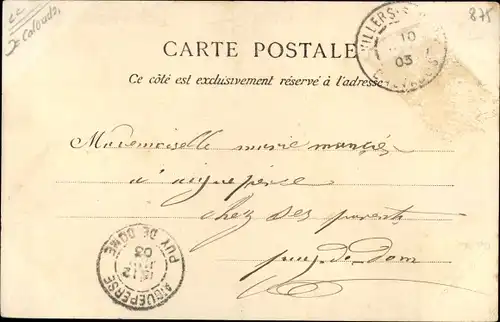 875
CARTE POSTALE
Ce côté est exclusivement réservé à l'adresse
VILLERS
10
03
Mademoiselle marie
a' aigueperce
chez ses parents
puy-de-Dom
AIGUEPERSE
PUY DE DOME
12
03